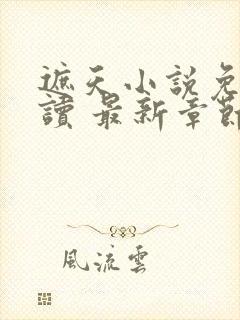 遮天小說免
讀 最新章節
風流雲